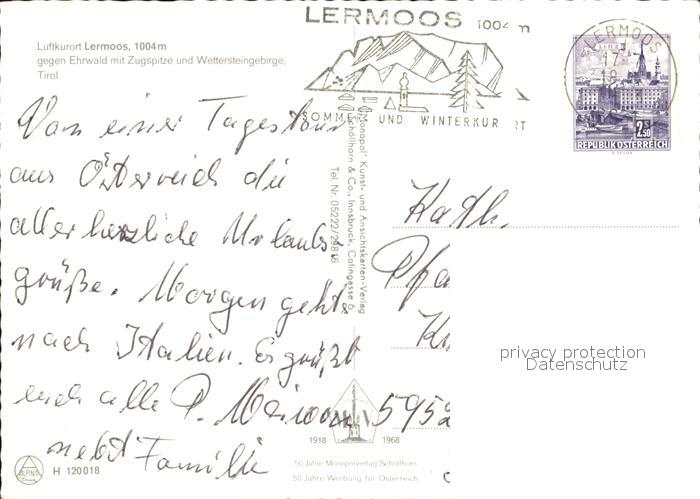 LERMOOS 1004 m
LERMOOS
17
Luftkurort Lermoos, 1004 m
gegen Ehrwald mit Zugspitze und Wettersteingebirge,
Tirol
SOMMER UND WINTERKUR RT
LINZ
2.50
REPUBLIK ÖSTERREICH
Von einer Tagestour
aus Österreich die
allerherzliche Urlaubs-
grüße. Morgen geht's
nach Italien. Es grüßt
euch alle P.
nebst Familie
"Monopol" Kunst- und Ansichtskarten-Verlag
Schöllhorn & Co., Innsbruck, Colingasse 6
Tel. Nr. 05222/29816
Kath.
Pfa
K
privacy protection
Datenschutz
5952
1918 1968
50 Jahre Monopolverlag Schöllhorn
50 Jahre Werbung für Österreich
ALPINA
H 120018